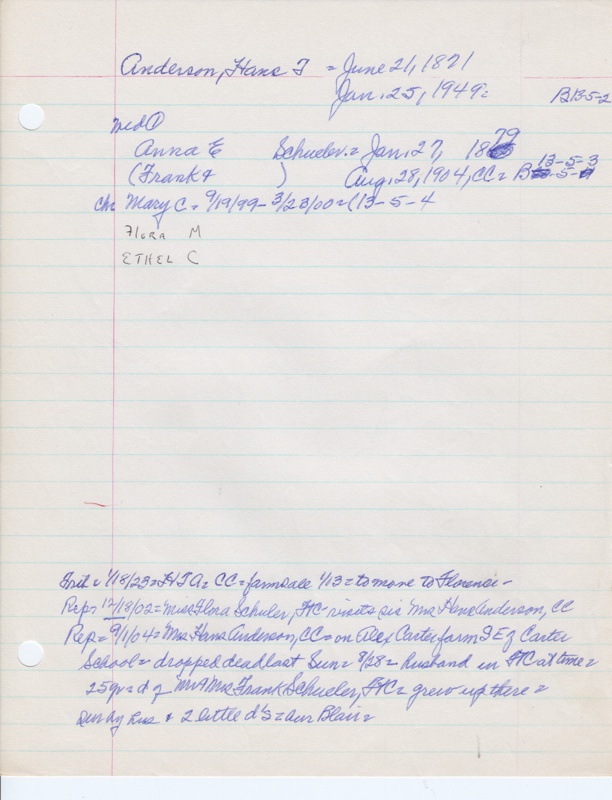 Anderson, Hans T = June 21, 1871
Jan. 25, 1949 = B13-5-2
md ①
Anna E Schueler = Jan. 27, 1879
(Frank & ) Aug. 28, 1904, CC = B 13-5-3
ch: Mary C = 9/19/99 - 3/23/00 = (13-5-4
Flora M
ETHEL C
1/18/23 = HTA = CC = farm sale 1/13 = to move to Florence -
Rep = 12/18/02 = Miss Flora Schuler, FtC visits sis Mrs Hans Anderson, CC
Rep = 9/1/04 = Mrs Hans Anderson, CC = on Alex Carter farm SE of Carter
School = dropped dead last Sun = 8/28 = husband in FtC at time =
25 yr = d of Mr & Mrs Frank Schueler, FtC = grew up there =
by hus & 2 little d's = bur Blair =